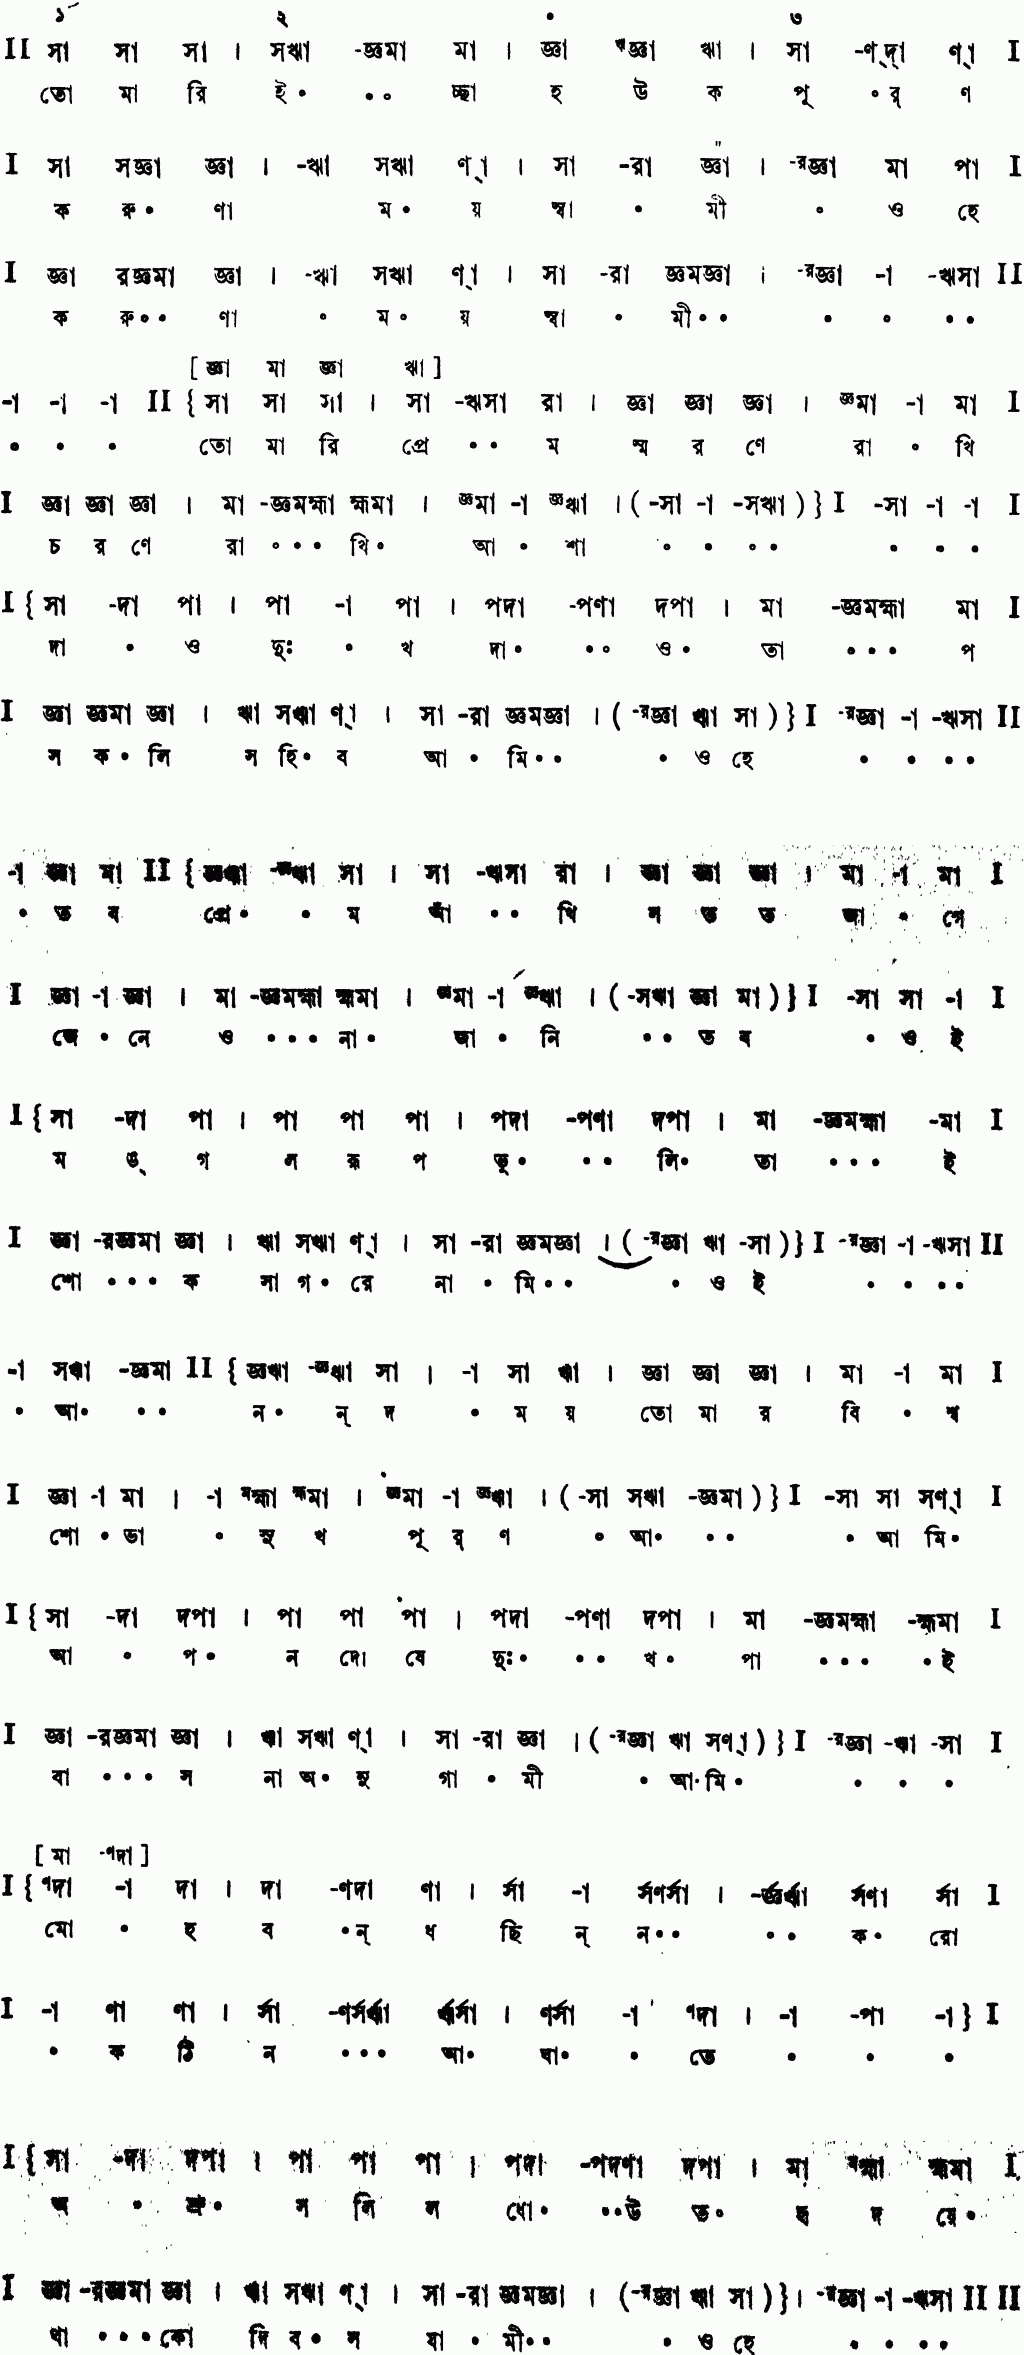 ১´ ২ ০ ৩
II সা সা সা । সঋা -জ্ঞমা মা । জ্ঞা ঋজ্ঞা ঋা । সা -ণ্‌দ্‌া ণ্‌া I
তো মা রি ই • • ০ চ্ছা হ উ ক পূ ০ র্ ণ
I সা সজ্ঞা জ্ঞা । -ঋা সঋা ণ্‌া । সা -রা জ্ঞা । -রজ্ঞা মা পা I
ক রু • ণা ম • য় স্বা • মী • ও হে
I জ্ঞা রজ্ঞমা জ্ঞা । -ঋা সঋা ণ্‌া । সা -রা জ্ঞমজ্ঞা । -রজ্ঞা -া -ঋসা II
ক রু • • ণা ০ ম ০ য় স্বা • মী • • • • • •
[ জ্ঞা মা জ্ঞা ঋা ]
-া -া -া II { সা সা সা । সা -ঋসা রা । জ্ঞা জ্ঞা জ্ঞা । জ্ঞমা -া মা I
• • • তো মা রি প্রে • • ম স্ম র ণে রা • খি
I জ্ঞা জ্ঞা জ্ঞা । মা -জ্ঞমহ্মা হ্মমা । জ্ঞমা -া জ্ঞঋা । ( -সা -া -সঋা ) } I -সা -া -া I
চ র ণে রা ০ • • থি • আ • শা • • • • • • •
I { সা -দা পা । পা -া পা । পদা -পণা দপা । মা -জ্ঞমহ্মা মা I
দা • ও দুঃ • খ দা • • ০ ও • তা • • • প
I জ্ঞা জ্ঞমা জ্ঞা । ঋা সঋা ণ্‌া । সা -রা জ্ঞমজ্ঞা । ( -রজ্ঞা ঋা সা ) } I -রজ্ঞা -া -ঋসা II
স ক • লি স হি • ব আ • মি • • • ও হে • • • •
-া জ্ঞা মা II { জ্ঞঋা -জ্ঞঋা সা । সা -ঋসা রা । জ্ঞা জ্ঞা জ্ঞা । মা -া মা I
• ত ব প্রে • • ম আঁ • • খি স ত ত জা • গে
I জ্ঞা -া জ্ঞা । মা -জ্ঞমহ্মা হ্মমা । জ্ঞমা -া জ্ঞঋা । ( -সঋা জ্ঞা মা ) } I -সা সা -া I
জে • নে ও • • • না • জা • নি • • ত ব • ও ই
I { সা -দা পা । পা পা পা । পদা -পণা দপা । মা -জ্ঞমহ্মা -মা I
ম ঙ্ গ ল রূ প ভু • • • লি • তা • • • ই
I জ্ঞা -রজ্ঞমা জ্ঞা । ঋা সঋা ণ্‌া । সা -রা জ্ঞমজ্ঞা । ( -রজ্ঞা ঋা -সা ) } I -রজ্ঞা -া -ঋসা II
শো • • • ক সা গ • রে না • মি • • • ও ই • • • •
-া সঋা -জ্ঞমা II { জ্ঞঋা -জ্ঞঋা সা । -া সা ঋা । জ্ঞা জ্ঞা জ্ঞা । মা -া মা I
• আ • • • ন • ন্ দ • ম য় তো মা র বি • শ্ব
I জ্ঞা -া মা । -া মহ্মা হ্মমা । জ্ঞমা -া জ্ঞঋা । ( -সা সঋা -জ্ঞমা ) } I -সা সা সণ্‌া I
শো • ভা • সু খ পূ র্ ণ • আ • • • • আ মি •
I { সা -দা দপা । পা পা পা । পদা -পণা দপা । মা -জ্ঞমহ্মা -হ্মমা I
আ • প • ন দো ষে দুঃ • • • খ • পা • • • • ই
I জ্ঞা -রজ্ঞমা জ্ঞা । ঋা সঋা ণ্‌া । সা -রা জ্ঞা । ( -রজ্ঞা ঋা সণ্‌া ) } I -রজ্ঞা -ঋা -সা I
বা • • • স না অ • নু গা • মী • আ • মি • • • •
[ মা -ণদা ]
I { ণদা -া দা । দা -ণদা ণা । র্সা -া র্সণর্সা । -র্জ্ঞর্ঋা র্সণা র্সা I
মো • হ ব • ন্ ধ ছি ন্ ন • • • • ক • রো
I -া ণা ণা । র্সা -ণর্সর্ঋা র্ঋর্সা । ণর্সা -া ণদা । -া -পা -া } I
• ক ঠি ন • • • আ • ঘা • • তে • • •
I { সা -দা দপা । পা পা পা । পদা -পদণা দপা । মা মহ্মা হ্মমা I
অ • শ্রু • স লি ল ধৌ • • • উ ত • হৃ দ য়ে •
I জ্ঞা -রজ্ঞমা জ্ঞা । ঋা সঋা ণ্‌া । সা -রা জ্ঞমজ্ঞা । ( -রজ্ঞা ঋা সা ) } । -রজ্ঞা -া -ঋসা II II
থা • • • কো দি ব • স যা • মী • • • ও হে • • • •